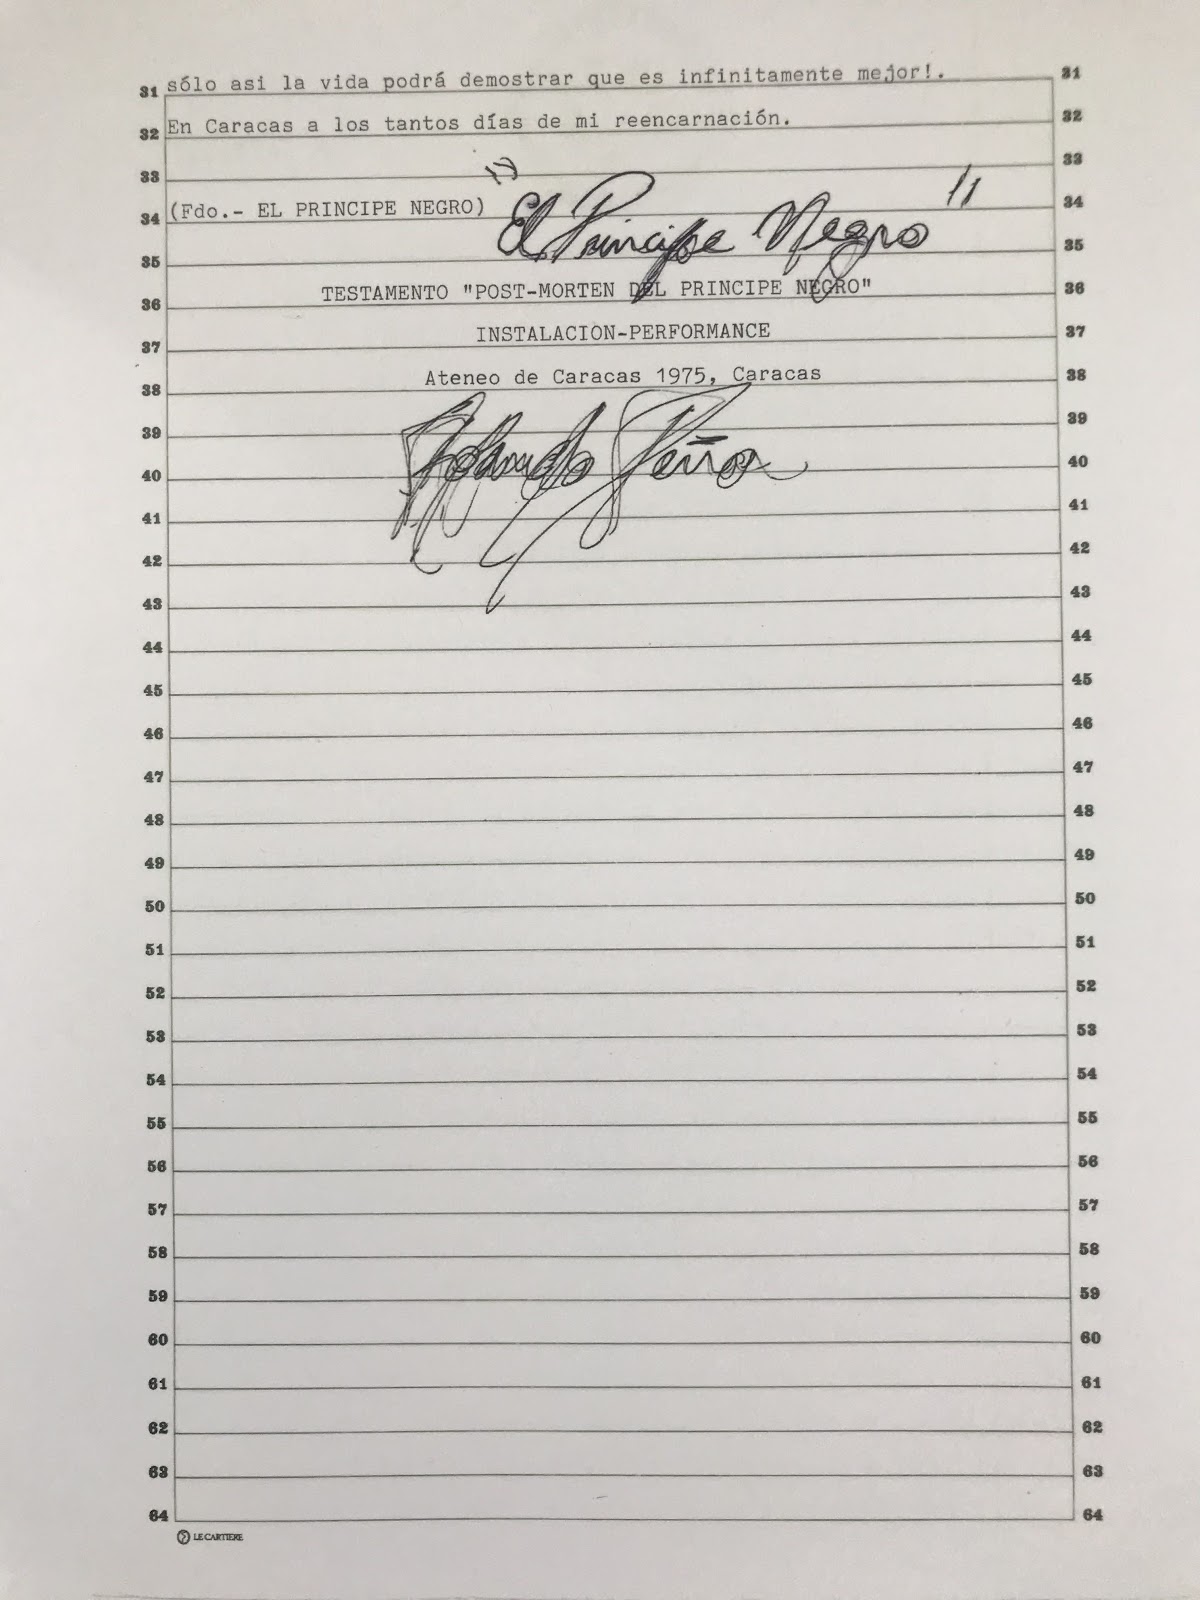 31 sólo asi la vida podrá demostrar que es infinitamente mejor!. 31
32 En Caracas a los tantos días de mi reencarnación. 32
33 33
34 (Fdo.- EL PRINCIPE NEGRO) "El Principe Negro" 34
35 35
36 TESTAMENTO "POST-MORTEN DEL PRINCIPE NEGRO" 36
37 INSTALACION-PERFORMANCE 37
38 Ateneo de Caracas 1975, Caracas 38
39 39
40 Rolando Peña 40
41 41
42 42
43 43
44 44
45 45
46 46
47 47
48 48
49 49
50 50
51 51
52 52
53 53
54 54
55 55
56 56
57 57
58 58
59 59
60 60
61 61
62 62
63 63
64 64
LE CARTIERE